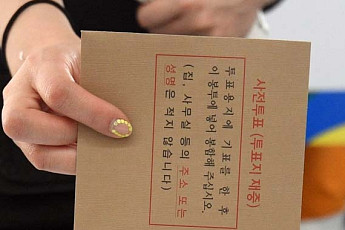 사전투표 (투표지 재중)
투표용지에 기표를 한 후
이 봉투에 넣어 봉함해 주십시오.
(집, 사무실 등의 주소 또는
성명은 적지 않습니다)